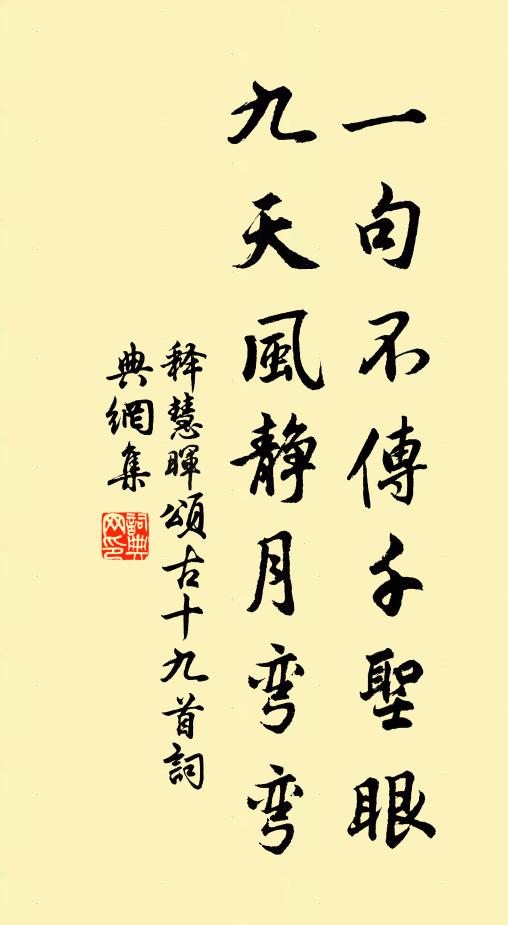 一句不傳千聖眼
九天風静月弯弯
释慧暉頌古十九首詞
典網集
詞典
网印